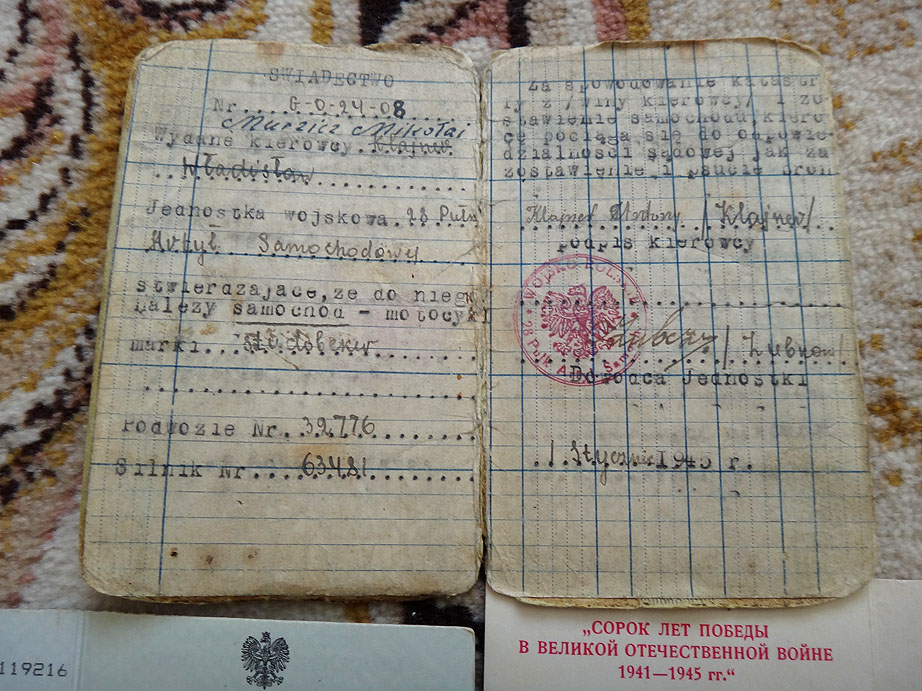 SWIADECTWO
Nr....G-0-24-08
Murzicz Mikołaj
Wydane kierowcy.
Władisław
Jednostka wojskowa.
Artył Samochodowy
stwierdzające, ze do niego
należy samochod - motocykl
marki...
Podwozie Nr..32776
Silnik Nr....63481
Za spowodowanie katastr
fy z /winy kierowcy/ i zo
stawienie samochodu, kiero
cę pociąga się do odpowie
dzialności sądowej jak za
zostawienie i psucie broni
/Kłajner/
podpis kierowcy
WOJSKO
Dowodca Jednostki
1945 r.
119216
„СОРОК ЛЕТ ПОБЕДЫ
В ВЕЛИКОЙ ОТЕЧЕСТВЕННОЙ ВОЙНЕ
1941—1945 гг.“